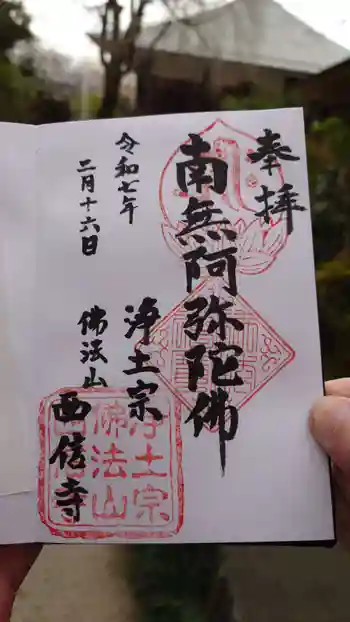 奉拝
南無阿弥陀佛
浄土宗
佛法山
西信寺
令和七年
二月十六日
浄土宗
佛法山